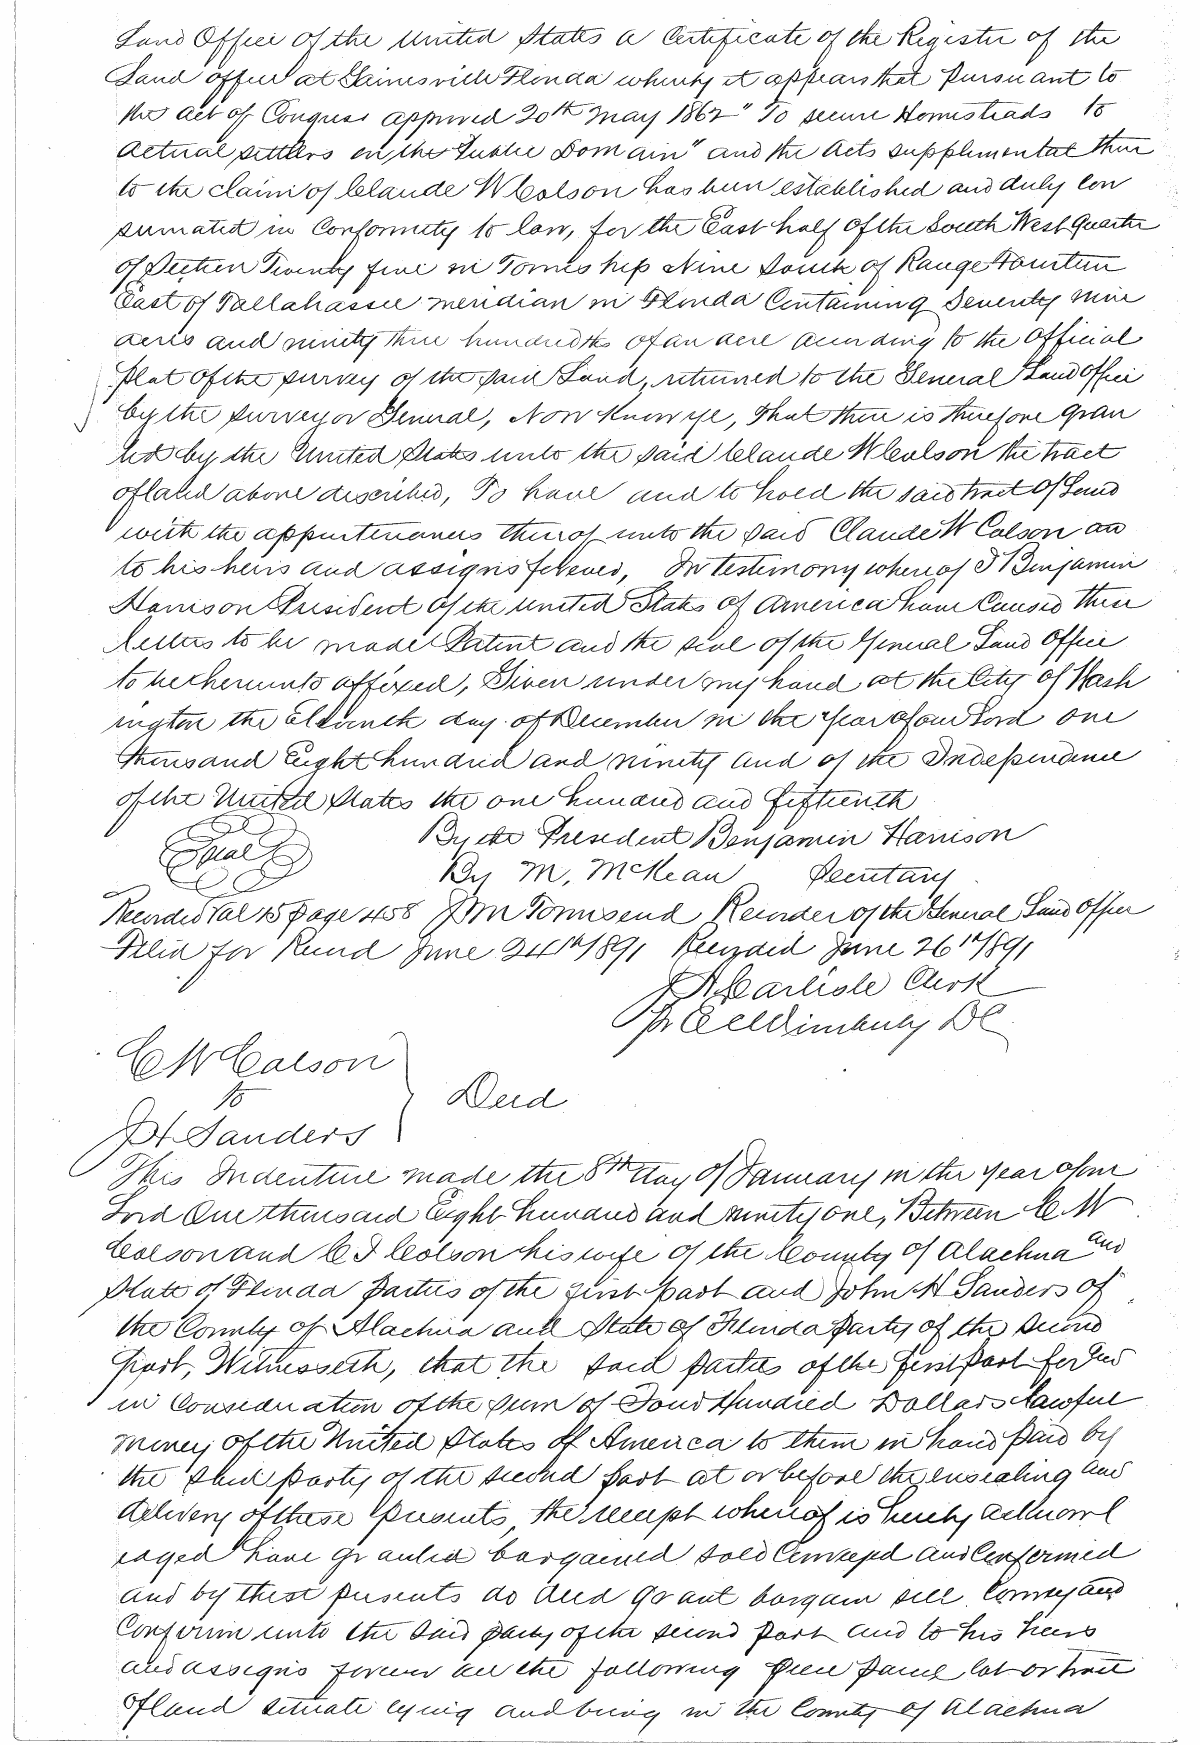 Land Office of the United States a Certificate of the Register of the
Land office at Gainesville Florida whereby it appears that Pursuant to
the act of Congress approved 20th May 1862 " To secure Homesteads to
actual settlers on the Public Domain" and the acts supplemental there
to the claim of Claude W Colson has been established and duly con
sumated in Conformity to law, for the East half of the South West Quarter
of Section Twenty five in Township Nine South of Range Fourteen
East of Tallahassee meridian in Florida Containing Seventy nine
acres and ninety three hundredths of an acre according to the Official
Plat of the survey of the said Land, returned to the General Land Office
by the Surveyor General, Now Know ye, That there is therefore gran
ted by the United States unto the said Claude W Colson the tract
of land above described, To have and to hold the said tract of Land
with the appurtenances thereof unto the said Claude W Colson an
to his heirs and assigns forever, In testimony whereof I Benjamin
Harrison President of the United States of America have Caused these
letters to be made Patent and the seal of the General Land Office
to be hereunto affixed, Given under my hand at the City of Wash
ington the Eleventh day of December in the Year of our Lord one
thousand Eight hundred and ninety and of the Independence
of the United States the one hundred and fifteenth
By the President Benjamin Harrison
Seal
By M. McKean Secretary
Recorded Vol 15 Page 458 J M Townsend Recorder of the General Land Office
Filed for Record June 24th 1891 Recorded June 26th 1891
J A Carlisle Clerk
pr C C Wimberly DC
C W Colson
to
J H Sanders
Deed
This Indenture made the 8th day of January in the year of our
Lord One thousand Eight hundred and ninety one, Between C. W
Colson and C I Colson his wife of the County of Alachua and
State of Florida Parties of the first part and John H Sanders of
the County of Alachua and State of Florida Party of the second
part, Witnesseth, that the said parties of the first Part for and
in Consideration of the sum of Four Hundred Dollars Lawful
money of the United States of America to them in hand Paid by
the said party of the second part at or before the ensealing and
delivery of these Presents, the receipt whereof is hereby acknowl
edged have granted bargained sold Conveyed and Confirmed
and by these presents do deed grant bargain sell Convey and
Confirm unto the said party of the second part and to his heirs
and assigns forever all the following piece parcel lot or tract
of land situate lying and being in the County of Alachua